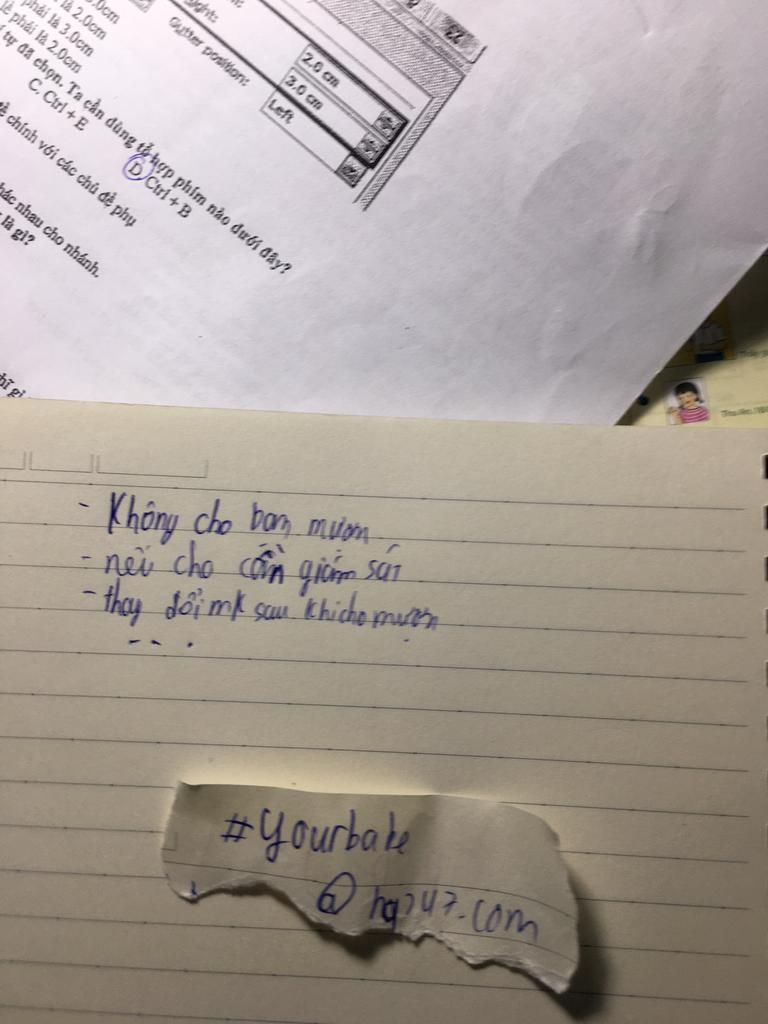 2.0 cm
3.0 cm
Left
Gutter position:
phải là 3.0cm
lề phải là 2.0cm
tự đã chọn. Ta cần dùng tổ hợp phím nào dưới đây?
C. Ctrl + E
D Ctrl + B
chính với các chủ đề phụ
nhau cho nhánh.
là gì?
- Không cho bạn mượn
- nếu cho cần giám sát
- thay đổi mk sau khi cho mượn
- - .
#yourbake
@hq247.com